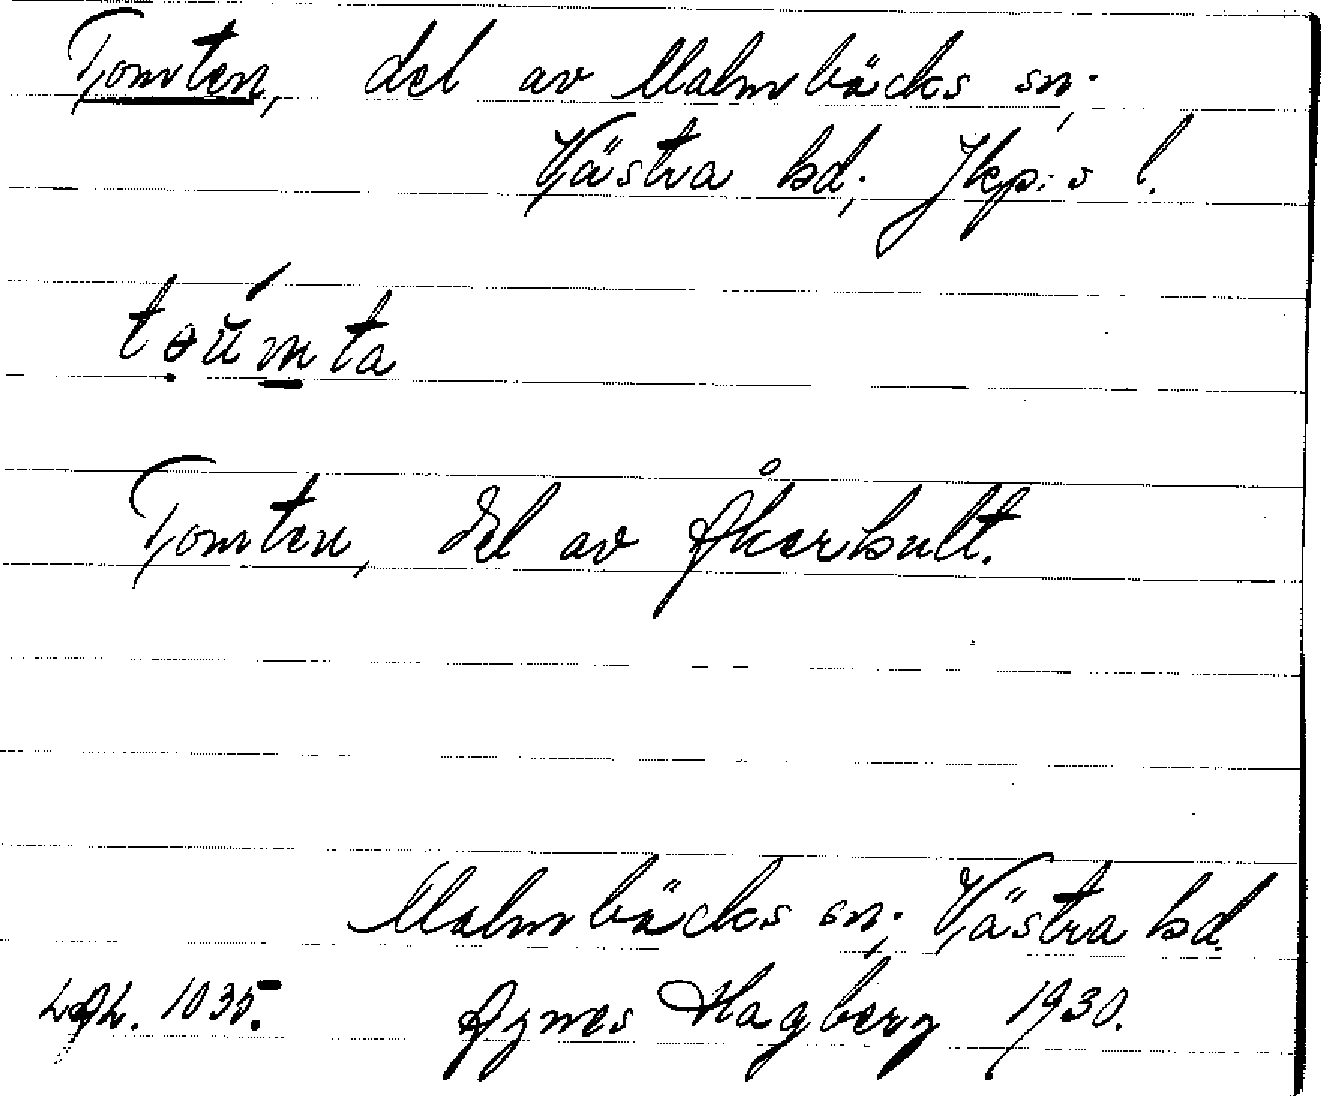 Tomten, del av Malmbäcks sn;
Västra hd; Jkp:s l.
tɵŭ́mta
Tomten, del av Åkerhult.
Malmbäcks sn; Västra hd.
1035.
Agnes Hagberg 1930.